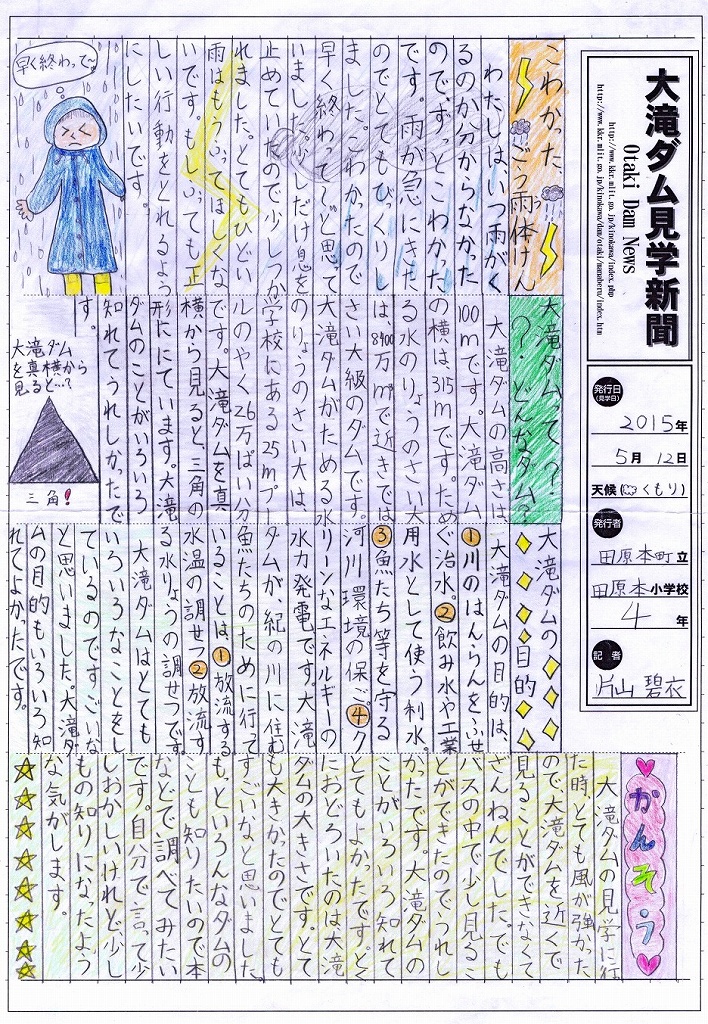 大滝ダム見学新聞
Otaki Dam News
http://www.kkr.mlit.go.jp/kinokawa/index.php
http://www.kkr.mlit.go.jp/kinokawa/dam/otaki/manaberu/index.htm
発行日
(見学日)
2015年
5月 12日
天候(くもり)
発行者
田原本町立
田原本小学校
4年
記者
片山 碧衣
こわかった、
ごう雨体けん
わたしは、いつ雨がく
るのか分からなかった
のでずっとこわかった
です。雨が急にきた
のでとてもびっくりし
ました。こわかったので
早く終わって〜と思って
いました。少しだけ息を
止めていたので少しつか
れました。とてもひどい
雨はもうふってほしくな
いです。もしふっても正
しい行動をとれるよう
にしたいです。
早く終わって〜
大滝ダムって?
?どんなダム?
大滝ダムの高さは、
100mです。大滝ダム
の横は315mです。ためら
る水のりょうのさい大
は、8400万m³で近きでは
さい大級のダムです。
大滝ダムがためる水
のりょうのさい大は、
学校にある25mプー
ルのやく26万ぱい分
です。大滝ダムを真
横から見ると、三角の
形ににています。大滝
ダムのことがいろいろ
知れてうれしかったで
す。
大滝ダム
を真横から
見ると…?
三角!
大滝ダムの
目的
大滝ダムの目的は、
①川のはんらんをふせ
ぐ治水。②飲み水や工業
用水として使う利水。
③魚たち等を守る
河川環境の保ご。④ク
リーンなエネルギーの
水力発電です。大滝
ダムが、紀の川に住む
魚たちのために行って
いることは、①放流する
水温の調せつ②放流す
る水りょうの調せつです。
大滝ダムはとても
いろいろなことをし
ているのですごいな
と思いました。大滝ダ
ムの目的もいろいろ知
れてよかったです。
かんそう
大滝ダムの見学に行
た時とても風が強かた
ので大滝ダムを近くで
見ることができなくて
ざんねんでした。でも
バスの中で少し見るこ
とができたのでうれし
かったです。大滝ダムの
ことがいろいろ知れて
とてもよかったです。とく
におどろいたのは大滝
ダムの大きさです。とて
も大きかったのでとても
すごいなと思いました。
もっといろんなダムの
ことも知りたいので本
などで調べてみたい
です。自分で言って少
しおかしいけれど、少し
もの知りになったよう
な気がします。